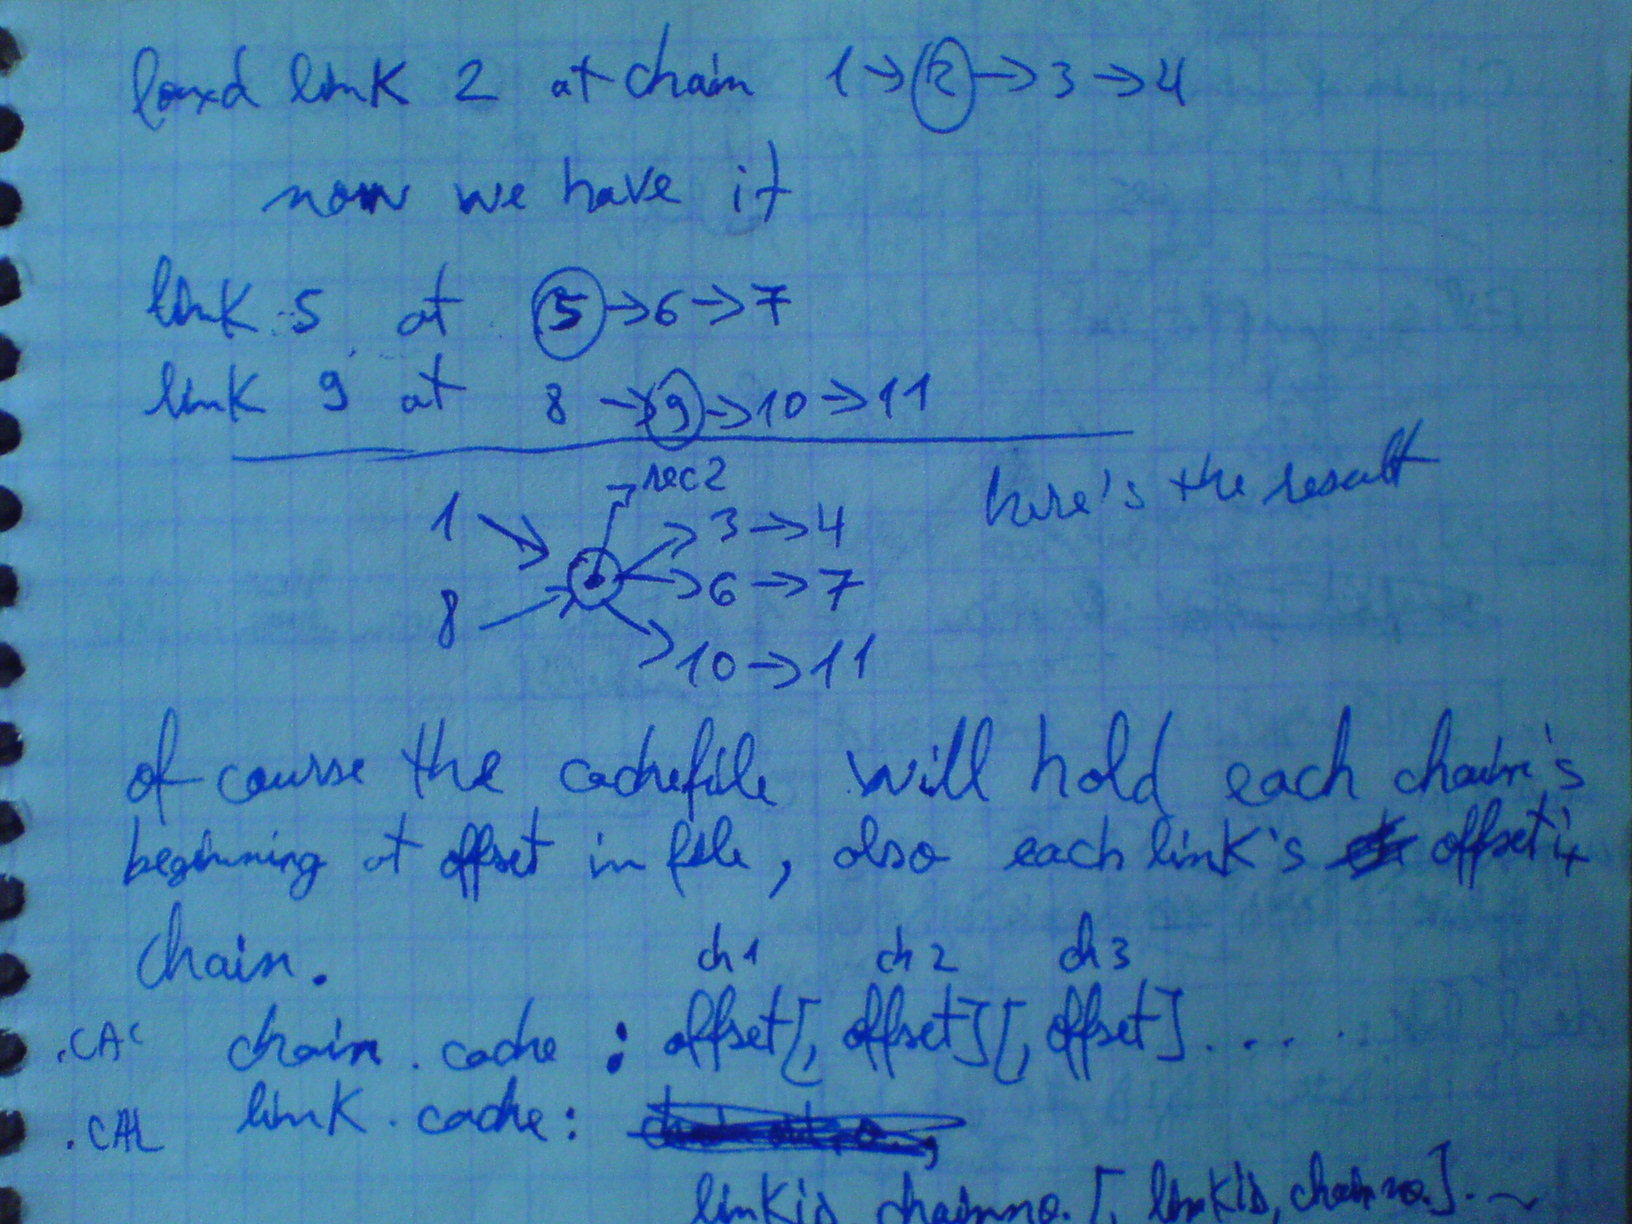 found link 2 at chain 1 → 2 → 3 → 4
now we have it
link 5 at 5 → 6 → 7
link 9 at 8 → 9 → 10 → 11
rec2
here's the result
1 3 → 4
8 6 → 7
10 → 11
of course the cachefile will hold each chain's
beginning at offset in file, also each link's offset in
chain.
ch1 ch2 ch3
.CAC chain.cache : offset[, offset][, offset]. . . .
.CAL link.cache :
linkid, chainno. [, linkid, chainno.]. ~